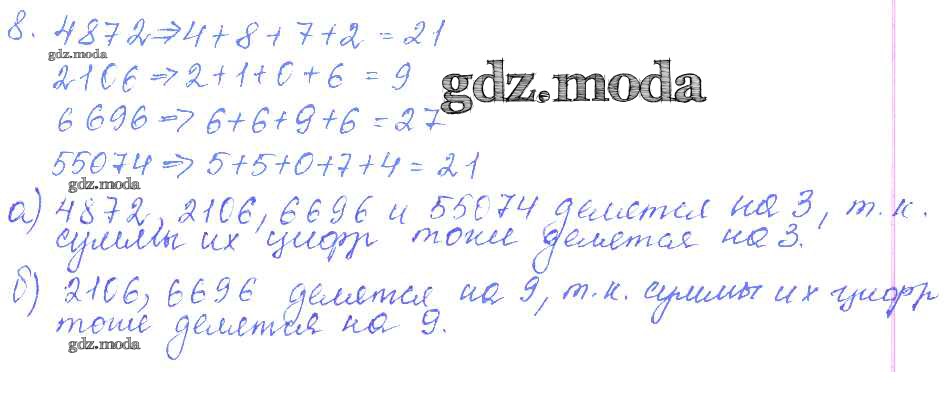 8. 4872 ⇒ 4+8+7+2 = 21
gdz.moda
2106 ⇒ 2+1+0+6 = 9
gdz.moda
6696 ⇒ 6+6+9+6 = 27
55074 ⇒ 5+5+0+7+4 = 21
gdz.moda
а) 4872, 2106, 6696 и 55074 делятся на 3, т.к.
суммы их цифр тоже делятся на 3.
б) 2106, 6696 делятся на 9, т.к. суммы их цифр
тоже делятся на 9.
gdz.moda